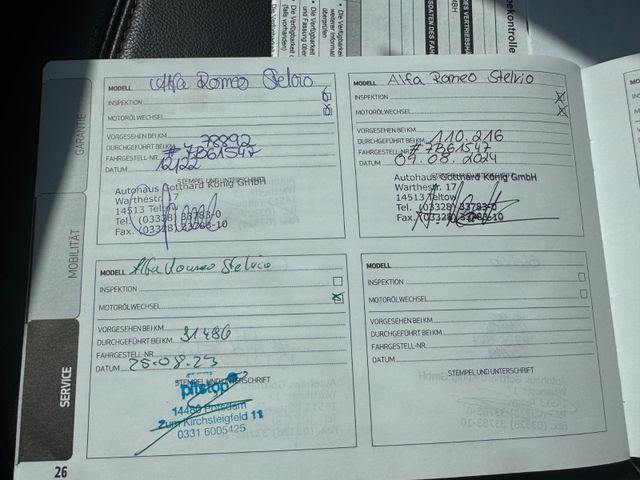 Die Verfügbarkeit
überprüfen
Die Verfügbarkeit
und Fassung
(falls vorhanden)
GMBH
GARANTIE
MOBILITÄT
SERVICE
MODELL Alfa Romeo Stelvio
INSPEKTION
MOTORÖLWECHSEL
VORGESEHEN BEI KM
DURCHGEFÜHRT BEI KM 78892
FAHRGESTELL-NR. #7B61547
DATUM 12/22
STEMPEL UND UNTERSCHRIFT
Autohaus Gotthard König GmbH
Warthestr. 17
14513 Teltow
Tel. (03328) 33783-0
Fax. (03328) 33783-10
MODELL Alfa Romeo Stelvio
INSPEKTION
MOTORÖLWECHSEL
VORGESEHEN BEI KM
DURCHGEFÜHRT BEI KM 110.216
FAHRGESTELL-NR. #7B61547
DATUM 09.08.2024
STEMPEL UND UNTERSCHRIFT
Autohaus Gotthard König GmbH
Warthestr. 17
14513 Teltow
Tel. (03328) 33783-0
Fax. (03328) 33783-10
MODELL Alfa Romeo Stelvio
INSPEKTION
MOTORÖLWECHSEL
VORGESEHEN BEI KM
DURCHGEFÜHRT BEI KM 91486
FAHRGESTELL-NR.
DATUM 25.08.23
STEMPEL UND UNTERSCHRIFT
pitstop
14480 Potsdam
Zum Kirchsteigfeld 11
0331 6005425
MODELL
INSPEKTION
MOTORÖLWECHSEL
VORGESEHEN BEI KM
DURCHGEFÜHRT BEI KM
FAHRGESTELL-NR.
DATUM
STEMPEL UND UNTERSCHRIFT
26